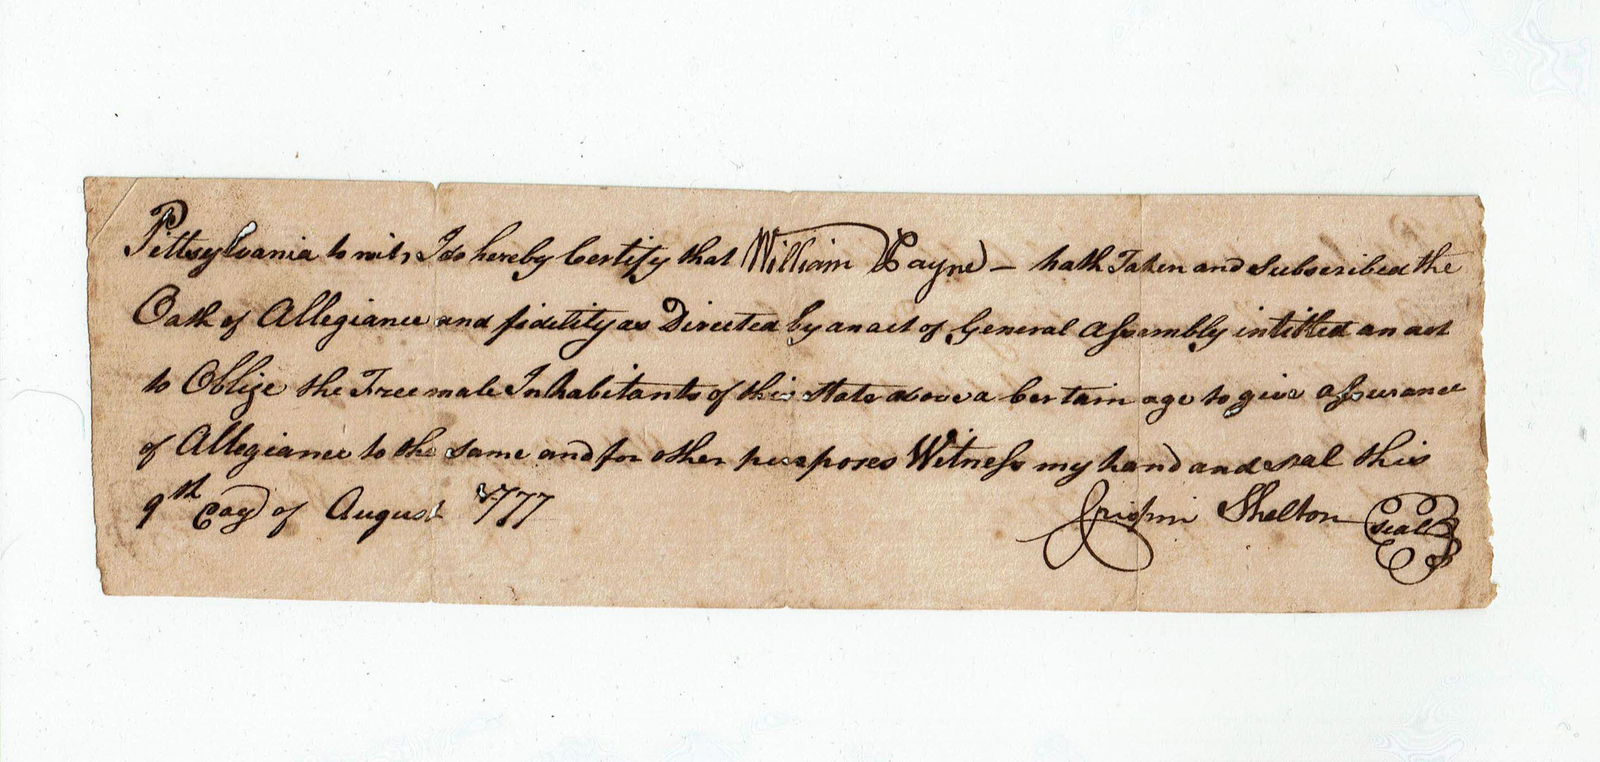 Pittsylvania to wit, I do hereby Certify that William Payne – hath Taken and subscribed the
Oath of Allegiance and fidelity as Directed by an act of General Assembly intitled an act
to Oblige the Free male Inhabitants of this State above a Certain age to give assurance
of Allegiance to the same and for other purposes Witness my hand and seal this
9th Day of August 1777 Crispin Shelton seal